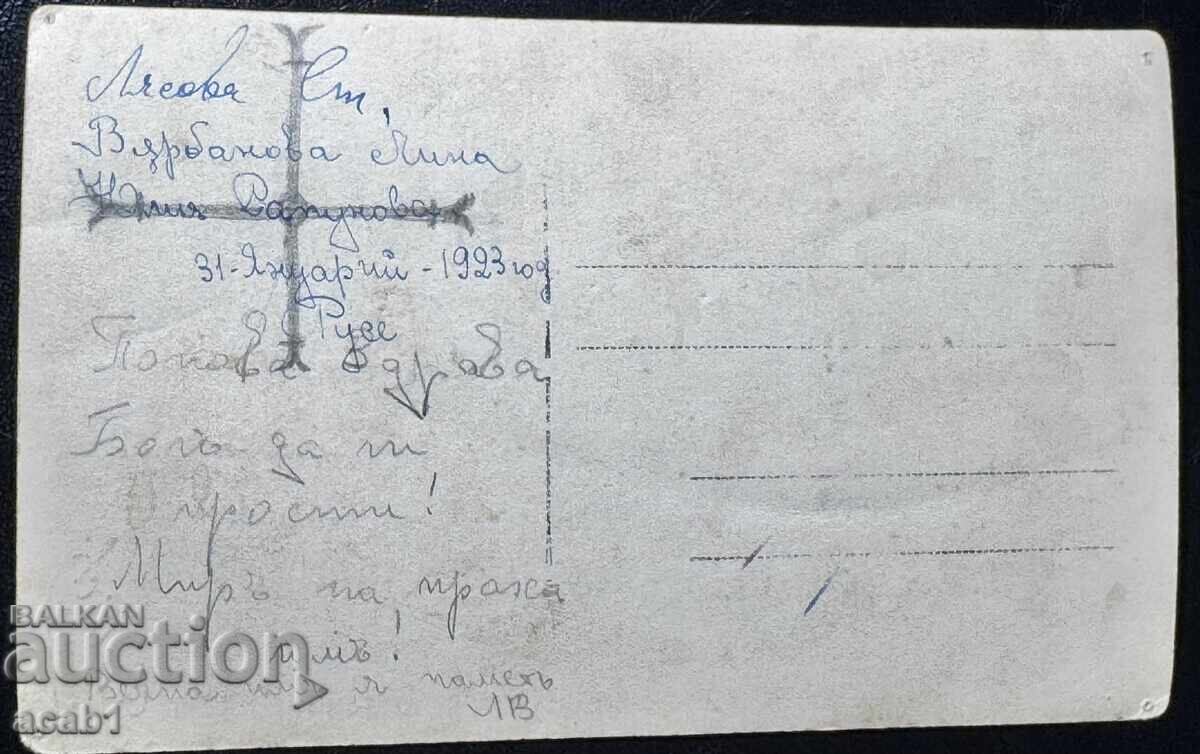 Лясова Ст.
Върбанова Лина
Юлия Сапунова
31-Януарий - 1923 год
Русе
Попова Здрава
Богъ да ти
прости!
Миръ на праха
имъ!
я паметь
ЛВ
BALKAN
auction
acab1